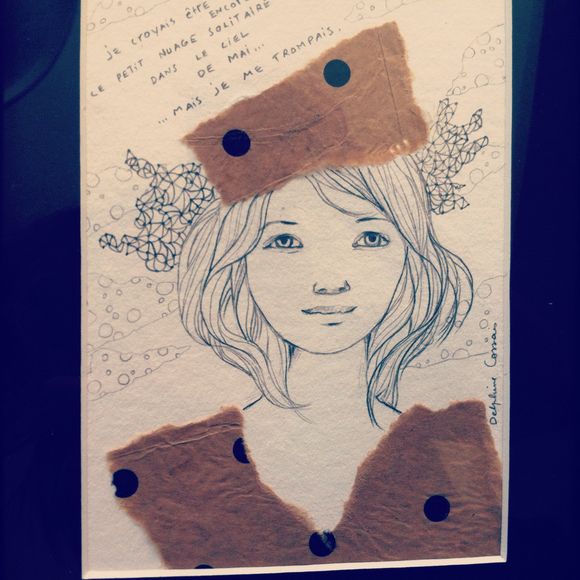 JE CROYAIS ÊTRE ENCORE
CE PETIT NUAGE SOLITAIRE
DANS LE CIEL
DE MAI...
... MAIS JE ME TROMPAIS.
Delphine